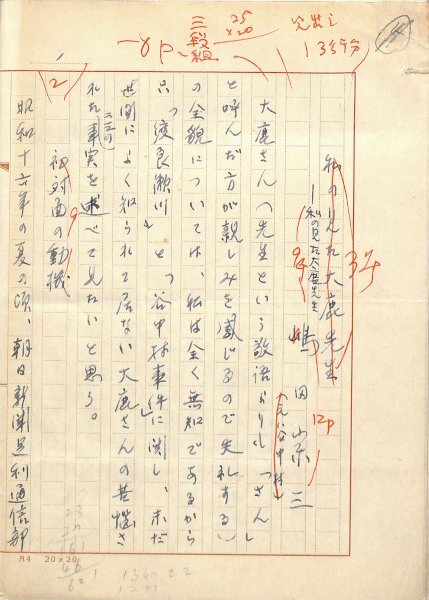 25
×20
三段組
8p
私の見た大鹿先生
—私の見た大鹿先生
嶋田宗三
12p
大鹿さん(先生という敬語よりも「さん」
と呼んだ方が親しみを感じるので失礼する)
の全貌については、私は全く無知であるから
只「渡良瀬川」と「谷中村事件」に関し、未だ
世間によく知られて居ない大鹿さんの苦悩さ
れた二三の事実を述べて見たいと思う。
初対面の動機
昭和十六年の夏の頃、朝日新聞足利通信部
A4 20×20